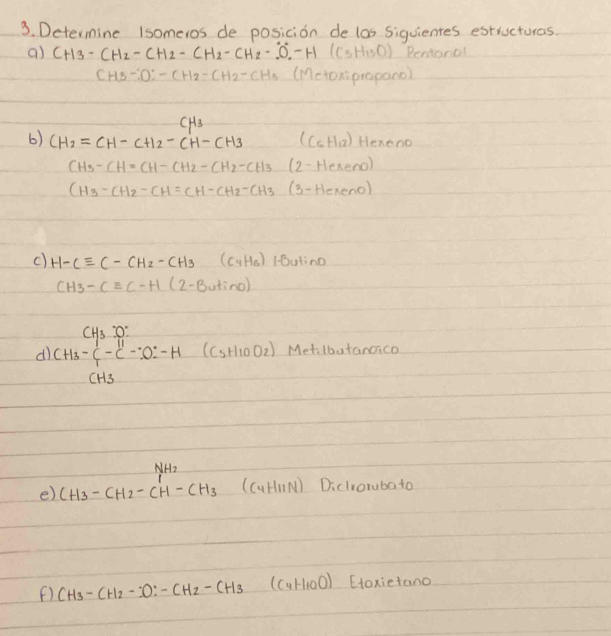 3. Determine Isomeros de posición de las siguientes estructuras.
a) CH3 - CH2 - CH2 - CH2 - CH2 - :Ö: - H (C5H13O) Pentanol
CH3 - :O: - CH2 - CH2 - CH3 (Metoxipropano)
CH3
b) CH2 = CH - CH2 - CH - CH3 (C6H12) Hexeno
CH3 - CH = CH - CH2 - CH2 - CH3 (2-Hexeno)
CH3 - CH2 - CH = CH - CH2 - CH3 (3-Hexeno)
c) H - C ≡ C - CH2 - CH3 (C4H6) 1-Butino
CH3 - C ≡ C - H (2-Butino)
CH3 :O:
d) CH3 - C - C - :O: - H (C5H10O2) Metilbutanoico
CH3
NH2
e) CH3 - CH2 - CH - CH3 (C4H11N)
f) CH3 - CH2 - :O: - CH2 - CH3 (C4H10O) Etoxietano